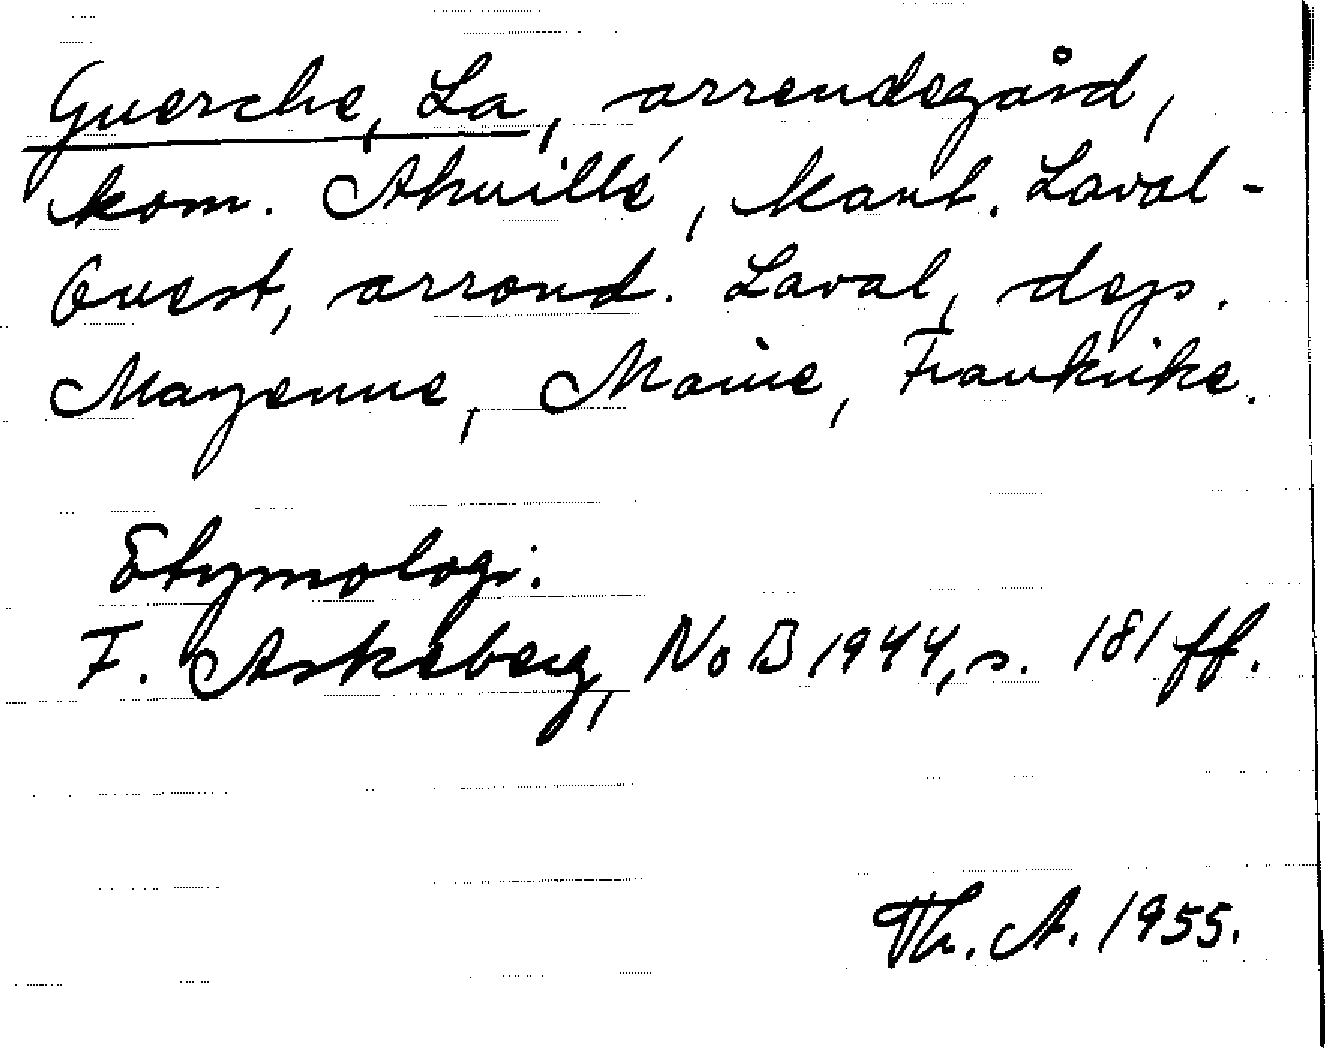 Guerche, La, arrendegård,
kom. Ahuillé, kant. Laval-
Ouest, arrond. Laval, dep.
Mayenne, Maine, Frankrike.
Etymologi:
F. Askeberg, NoB 1944, s. 181 ff.
Th. A. 1955.